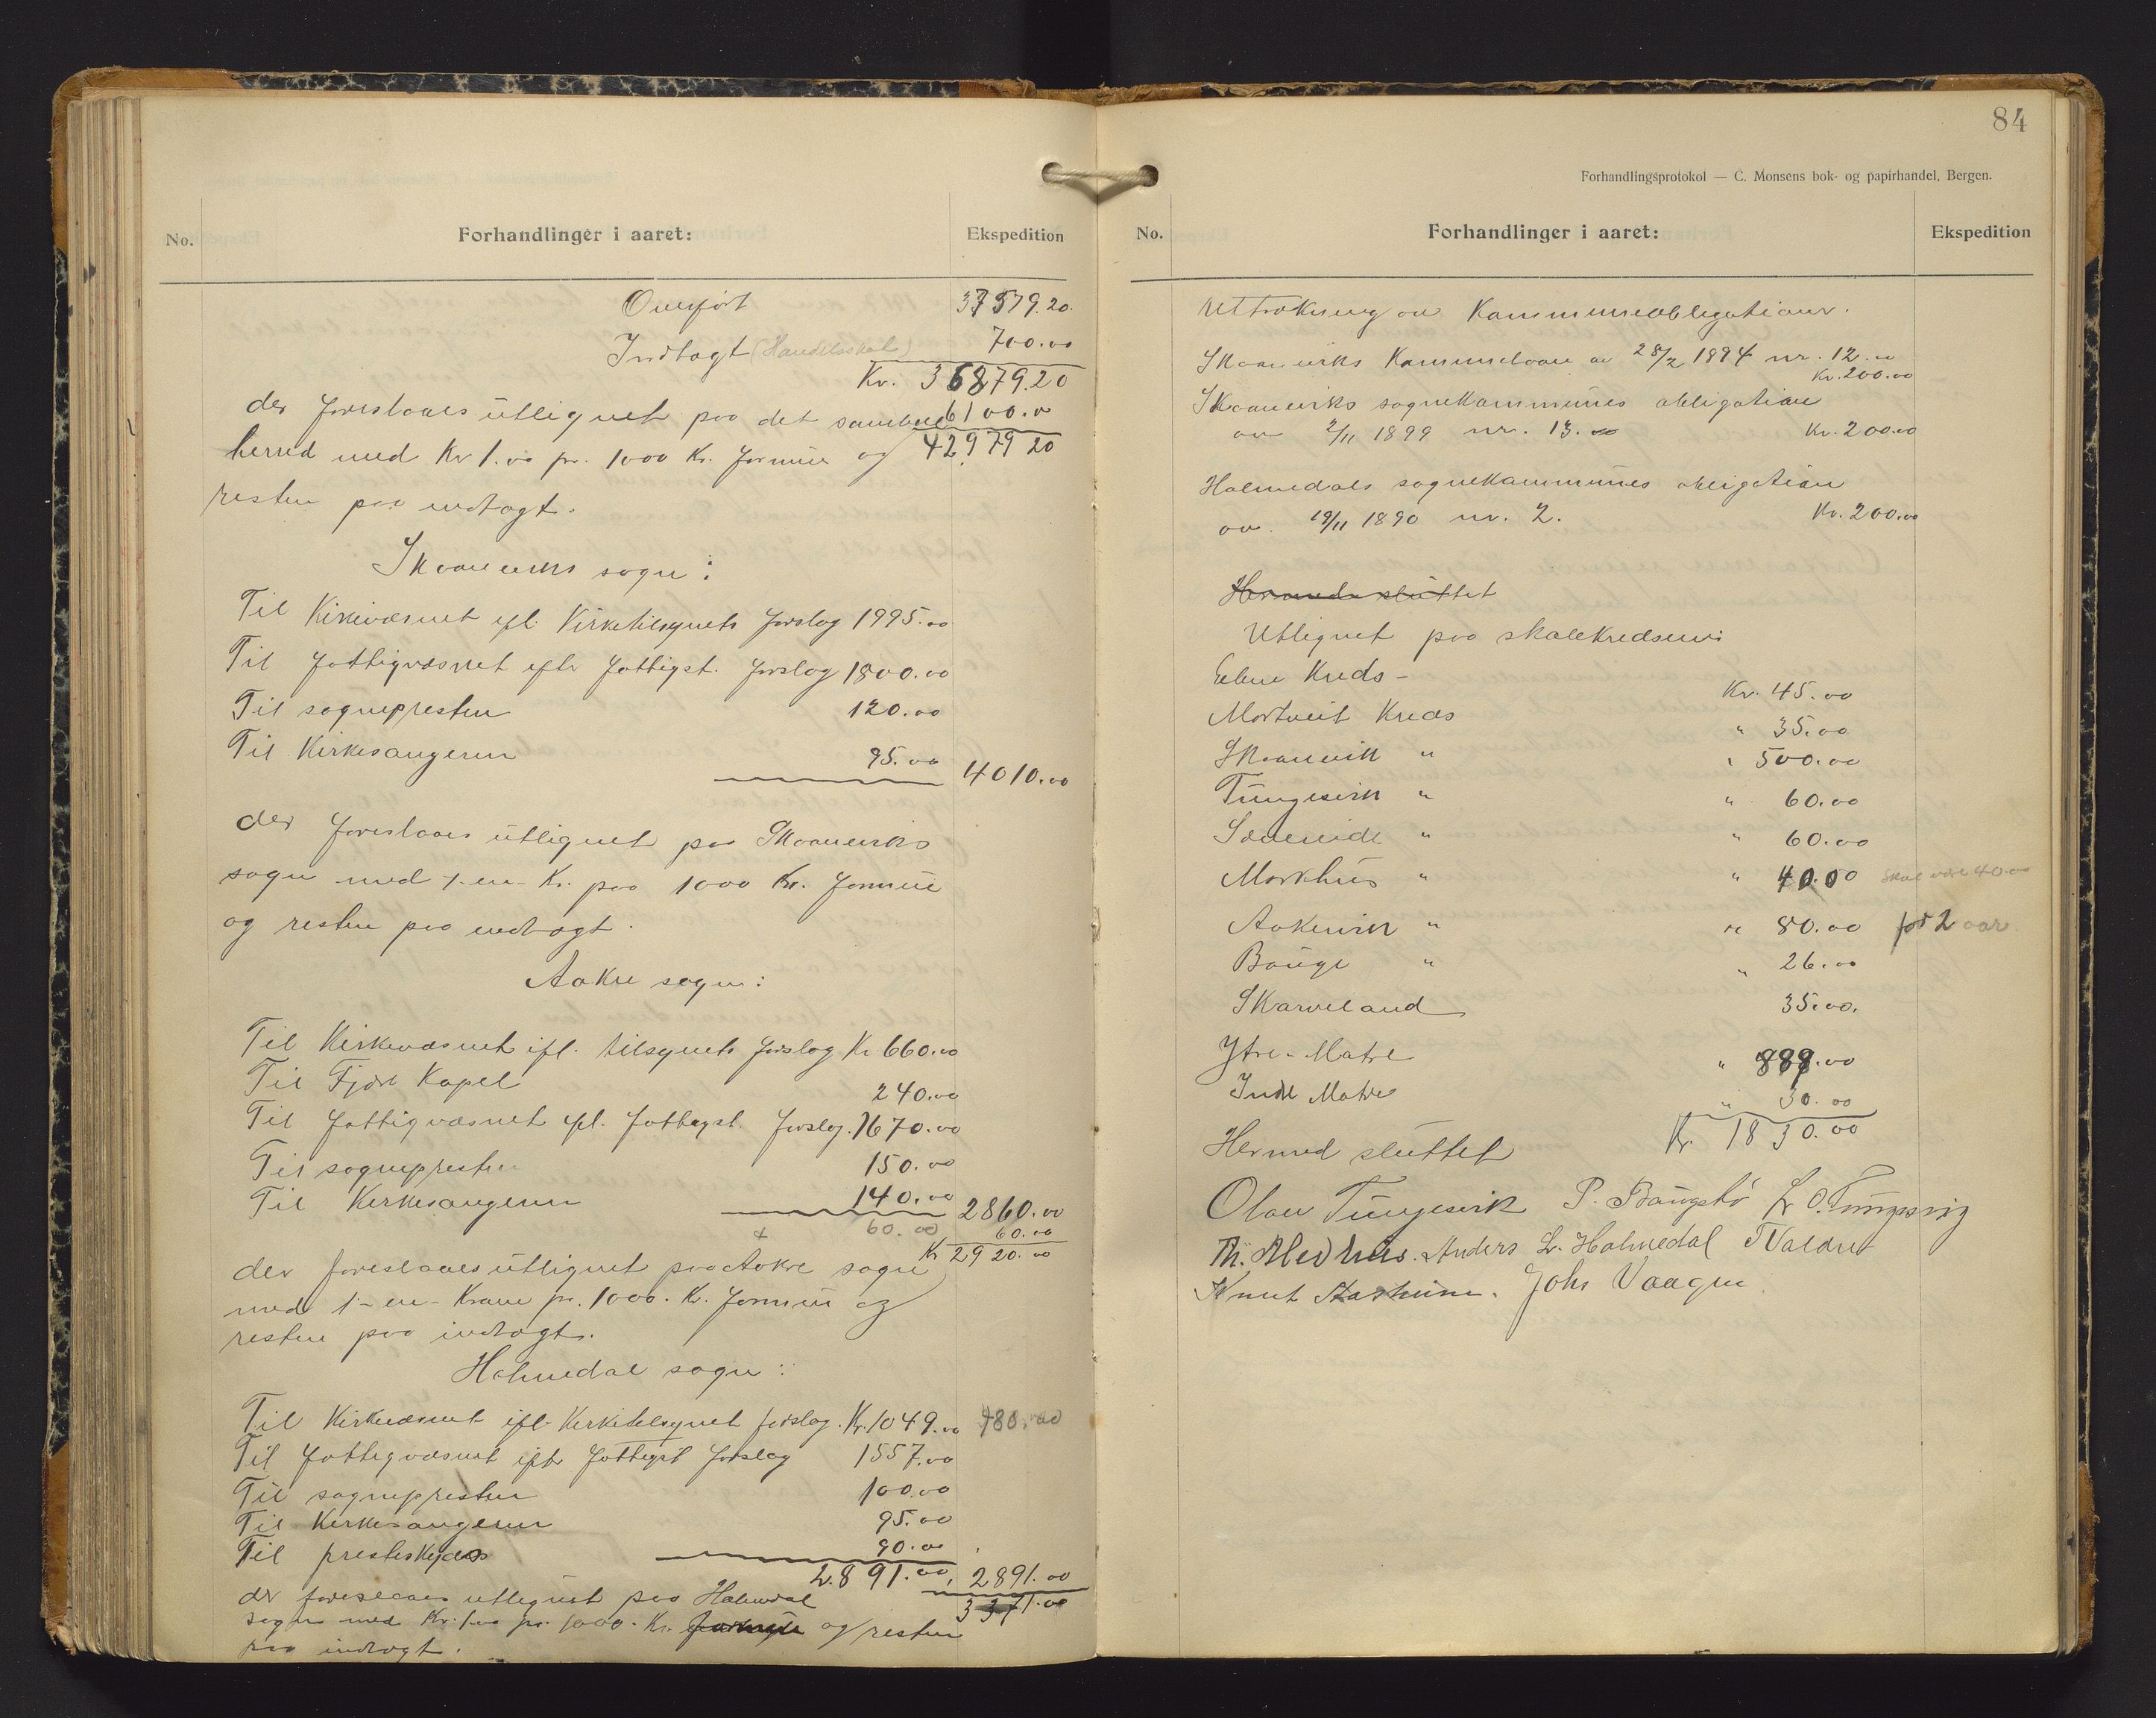 No. Forhandlinger i aaret: Ekspedition
Overført 37579.20
Indtægt (Handelsskat) 700.00
Kr. 36879.20
der foreslaaes utlignet paa det samlede 6100.00
herred med Kr 1.00 pr. 1000 Kr. formue og 42979 20
resten paa indtægt.
Skaaneviks sogn:
Til Kirkevæsnet efl. Kirketilsynets forslag 1995.00
Til fattigvæsnet eftr fattigst. forslag 1800.00
Til sognepresten 120.00
Til Kirkesangeren 95.00 4010.00
der foreslaaes utlignet paa Skaaneviks
sogn med 1-en- Kr. paa 1000 Kr. formue
og resten paa indtægt.
Aakre sogn:
Til Kirkevæsnet ifl. tilsynets forslag Kr 660.00
Til Fjære Kapel 240.00
Til fattigvæsnet efl. fattigst. forslag. 1670.00
Til sognepresten 150.00
Til Kirkesangeren 140.00 2860.00
+ 60.00 60.00
Kr 2920.00
der foreslaaes utlignet paa Aakre sogn
med 1-en- Krone pr. 1000. Kr. formue og
resten paa indtægt.
Holmedal sogn:
Til Kirkevæsnet ifl. Kirketilsynet forslag. Kr. 1049.00 480.00
Til fattigvæsnet iftr fattigst forslag 1557.00
Til sognepresten 100.00
Til Kirkesangeren 95.00
Til presteskyds 90.00
2.891.00 2891.00
der foreslaaes utlignet paa Holmedal 3371.00
sogn med Kr. 1.00 pr. 1000. Kr. formue og resten
paa indtægt.
84
Forhandlingsprotokol — C. Monsens bok- og papirhandel, Bergen.
No. Forhandlinger i aaret: Ekspedition
Uttrækning av Kommuneobligationer.
Skaaneviks Kommunelaan av 28/2 1894 nr. 12.00
Kr. 200.00
Skaaneviks sognekommunes obligation
av 2/11 1899 nr. 13. Kr. 200.00
Holmedals sognekommunes obligation
av 19/11 1890 nr. 2. Kr. 200.00
Hermed sluttet
Utlignet paa skolekredsene:
Ebne Kreds - Kr. 45.00
Mortveit Kreds " 35.00
Skaanevik " " 500.00
Tungesvik " " 60.00
Sævereide " " 60.00
Markhus " " 40.00 skal være 40.00
Aakervik " " 80.00 for 2 aar
Bauge " " 26.00
Skarveland 35.00.
Ytre-Matre " 889.00
Indre Matre " 30.00
Kr. 1830.00
Hermed sluttet
Olav Tungesvik P. Baugstø L. O. Tungesvig
Th. Medhus. Anders L. Holmedal T Valdre
Knut Aarhim. Johs Vaagen